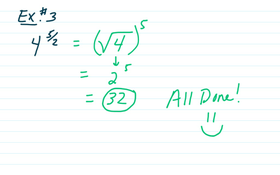 Ex. #3
4^(5/2) = (√4)^5
↓
= 2^5
= 32 All Done!